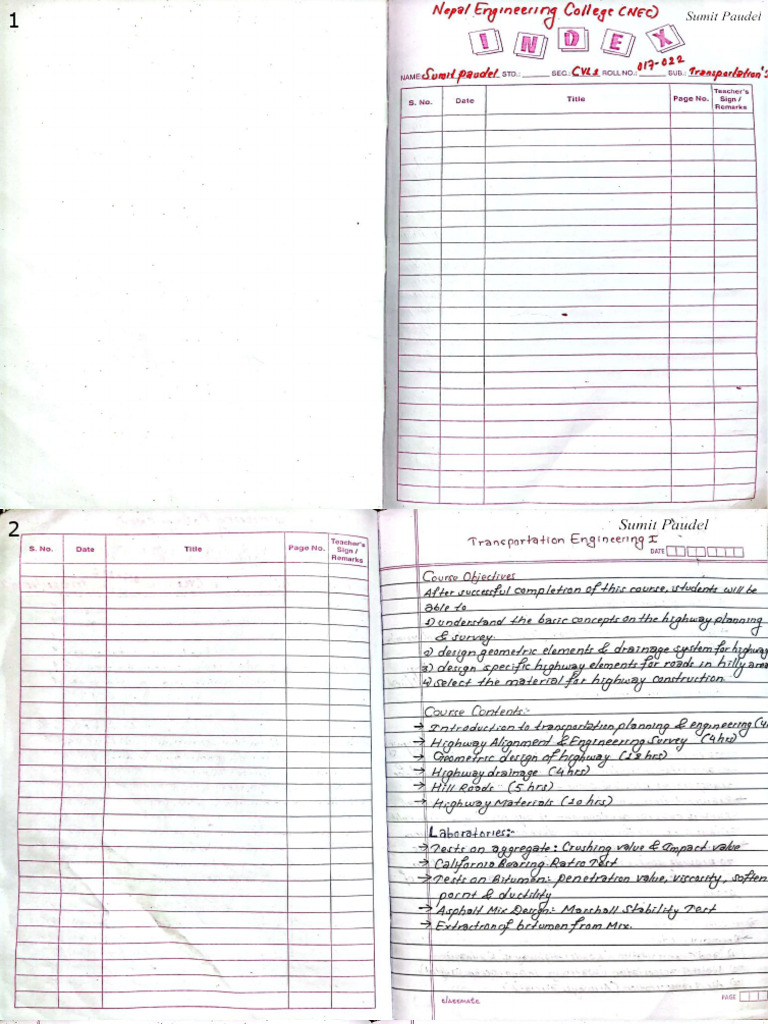 1
Nepal Engineering College (NEC)
Sumit Paudel
INDEX
NAME: Sumit Paudel STD.: SEC.: CVLs ROLL NO.: 017-022 SUB.: Transportation's
S. No. Date Title Page No. Teacher's Sign / Remarks
2
S. No. Date Title Page No. Teacher's Sign / Remarks
Sumit Paudel
Transportation Engineering I
DATE
Course Objectives
After successful completion of this course, students will be
able to
1) understand the basic concepts on the highway planning
& survey.
2) design geometric elements & drainage system for highway
3) design specific highway elements for roads in hilly area
4) select the material for highway construction
Course Contents:-
→ Introduction to transportation planning & engineering (4
→ Highway Alignment & Engineering Survey (4hrs)
→ Geometric design of highway (18 hrs)
→ Highway drainage (4 hrs)
→ Hill Roads (5 hrs)
→ Highway Materials (10 hrs)
Laboratories:-
→ Tests on aggregate: Crushing value & Impact value
→ California Bearing Ratio Test
→ Tests on Bitumen: penetration value, viscosity, soften
point & ductility
→ Asphalt Mix Design: Marshall Stability Test
→ Extraction of bitumen from Mix.
classmate
PAGE